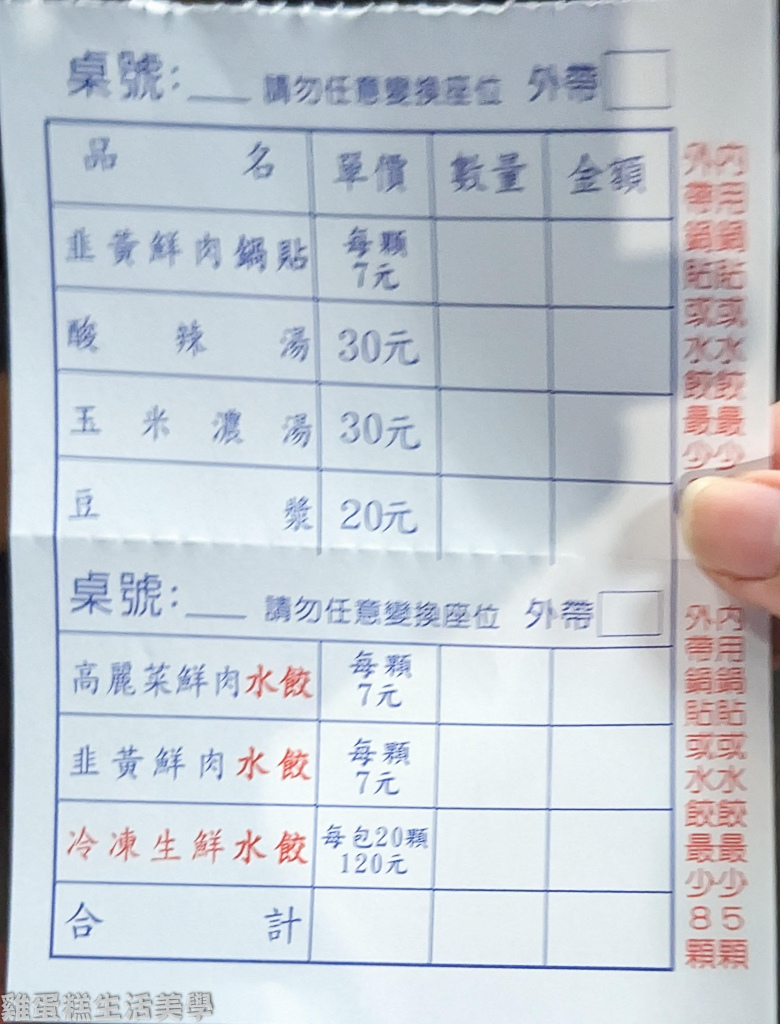 桌號:___ 請勿任意變換座位 外帶
品名 單價 數量 金額
韭黃鮮肉鍋貼 每顆
7元
酸辣湯 30元
玉米濃湯 30元
豆漿 20元
內用鍋貼或水餃最少
外帶鍋貼或水餃最少
桌號:___ 請勿任意變換座位 外帶
高麗菜鮮肉水餃 每顆
7元
韭黃鮮肉水餃 每顆
7元
冷凍生鮮水餃 每包20顆
120元
合計
內用鍋貼或水餃最少5顆
外帶鍋貼或水餃最少8顆
雞蛋糕生活美學